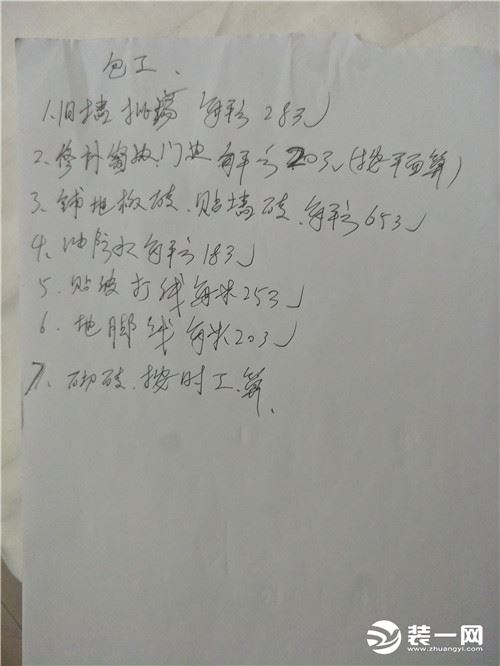 包工.
1.旧墙批荡每平方28元
2.修补窗边.门边每平方20元(按平面算)
3.铺地板砖.贴墙砖.每平方65元
4.油防水每平方18元
5.贴波打线每米25元
6.地脚线每米20元
7.砌砖.按时工.算.
装一网
www.zhuangyi.com